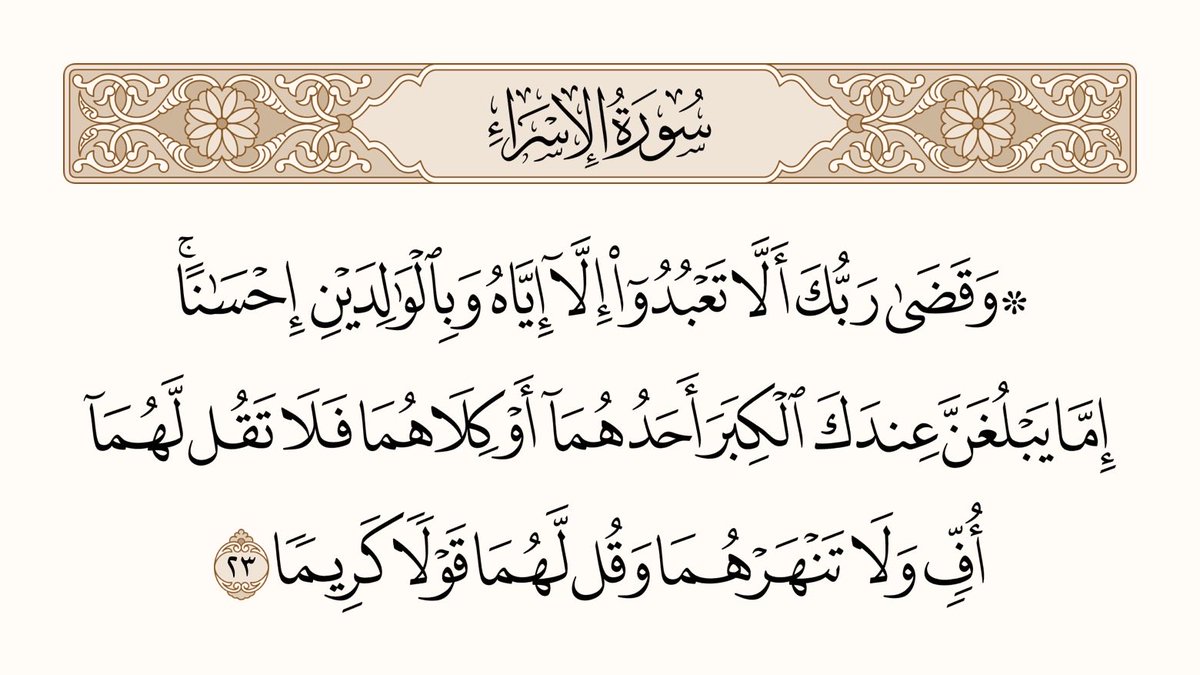 سُورَةُ الإِسۡرَاءِ
۞ وَقَضَىٰ رَبُّكَ أَلَّا تَعۡبُدُوٓاْ إِلَّآ إِيَّاهُ وَبِٱلۡوَٰلِدَيۡنِ إِحۡسَٰنًاۚ
إِمَّا يَبۡلُغَنَّ عِندَكَ ٱلۡكِبَرَ أَحَدُهُمَآ أَوۡ كِلَاهُمَا فَلَا تَقُل لَّهُمَآ
أُفّٖ وَلَا تَنۡهَرۡهُمَا وَقُل لَّهُمَا قَوۡلٗا كَرِيمٗا ٢٣